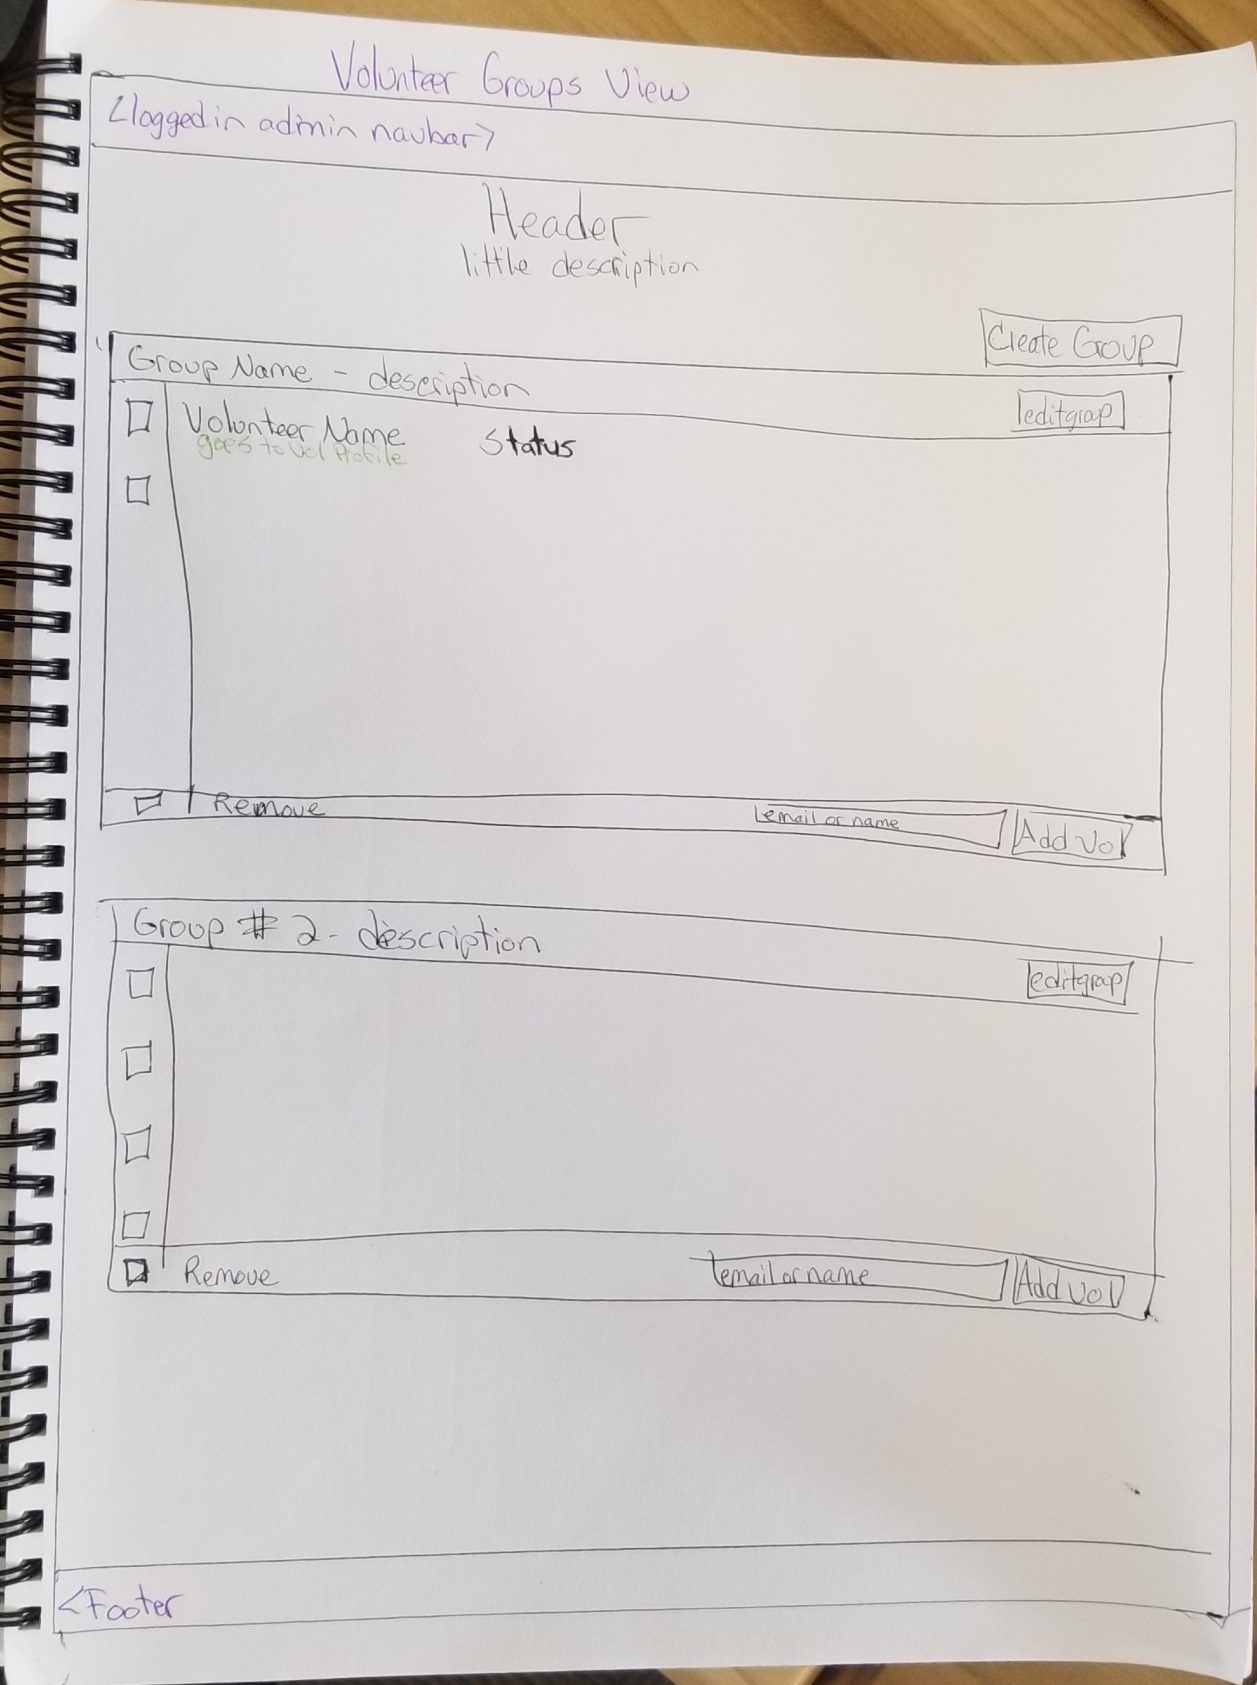 Volunteer Groups View
<logged in admin navbar>
Header
little description
Create Group
Group Name - description
editgroup
Volunteer Name Status
goes to Vol Profile
Remove email or name Add Vol
Group # 2 - description
editgroup
Remove email or name Add Vol
<Footer